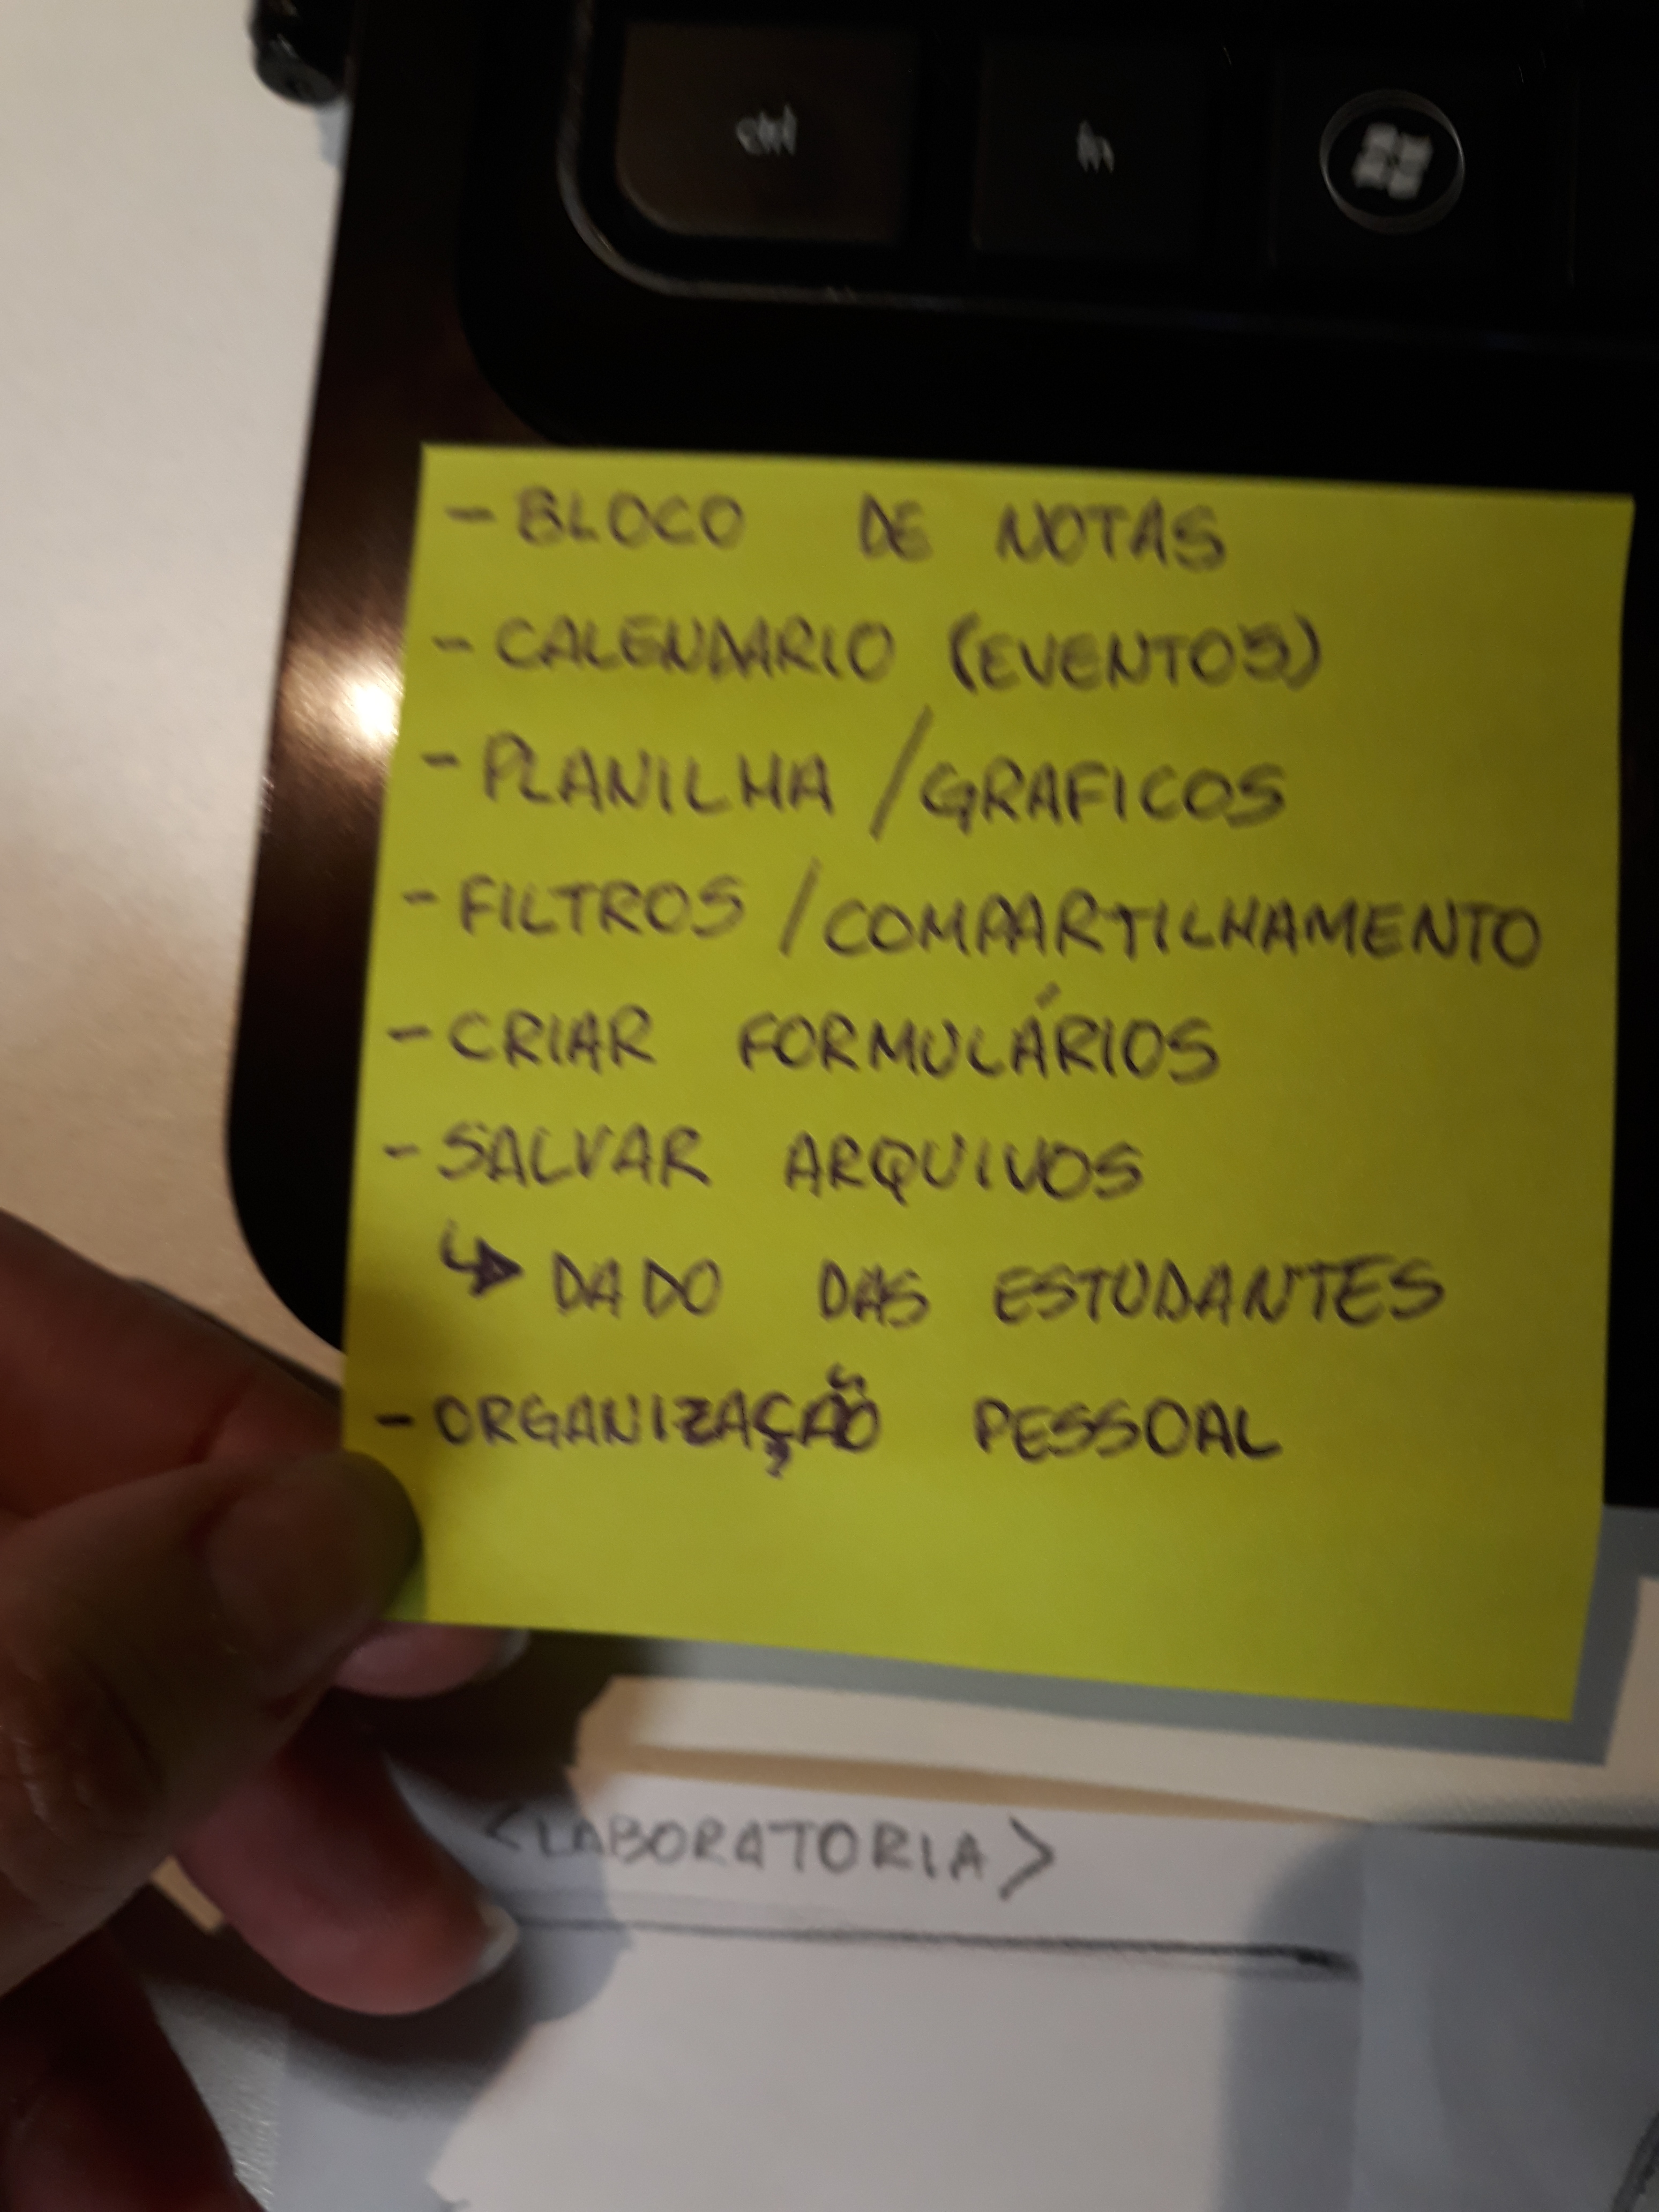 ctrl fn
- BLOCO DE NOTAS
- CALENDARIO (EVENTOS)
- PLANILHA / GRAFICOS
- FILTROS / COMPARTILHAMENTO
- CRIAR FORMULÁRIOS
- SALVAR ARQUIVOS
↳ DADO DAS ESTUDANTES
- ORGANIZAÇÃO PESSOAL
<LABORATORIA>